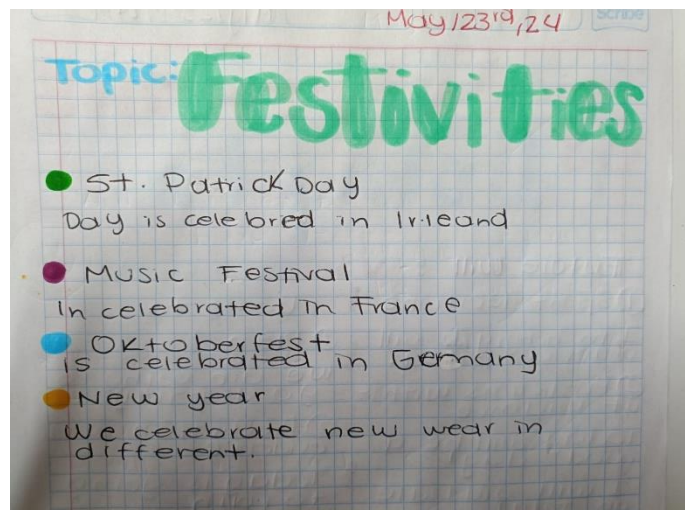 May/23rd,24
scribe
Topic: Festivities
St. Patrick Day
Day is celebred in Irleand
Music Festival
In celebrated in France
Oktoberfest
is celebrated in Germany
New year
We celebrate new wear in
different.